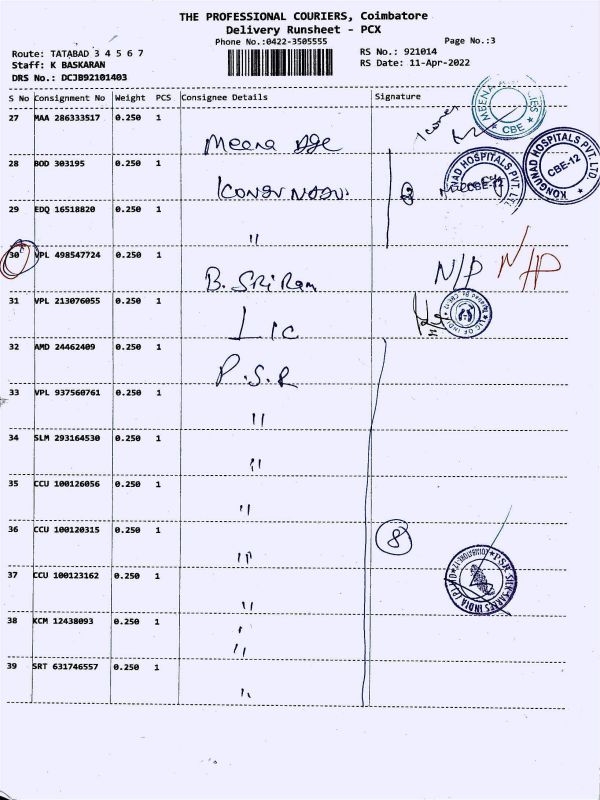 THE PROFESSIONAL COURIERS, Coimbatore
Delivery Runsheet - PCX
Phone No.:0422-3505555
Page No.:3
Route: TATABAD 3 4 5 6 7
RS No.: 921014
Staff: K BASKARAN
RS Date: 11-Apr-2022
DRS No.: DCJB92101403
S No Consignment No Weight PCS Consignee Details Signature
27 MAA 286333517 0.250 1
Meena
MEENA CBE
28 BOD 303195 0.250 1
KONGUNAD HOSPITALS PVT. LTD. CBE-12
KONGUNAD HOSPITALS PVT. LTD. CBE-12
29 EDQ 16518820 0.250 1
"
30 VPL 498547724 0.250 1
B. Sri Ram N/P N/P
31 VPL 213076055 0.250 1
LIC
LIC OF INDIA
32 AMD 24462409 0.250 1
P.S.R
33 VPL 937560761 0.250 1
"
34 SLM 293164530 0.250 1
"
35 CCU 100126056 0.250 1
"
36 CCU 100120315 0.250 1
" 8
37 CCU 100123162 0.250 1
"
P.S.R SILK SAREES INDIA (P) LTD COIMBATORE-12
38 KCM 12438093 0.250 1
"
39 SRT 631746557 0.250 1
"